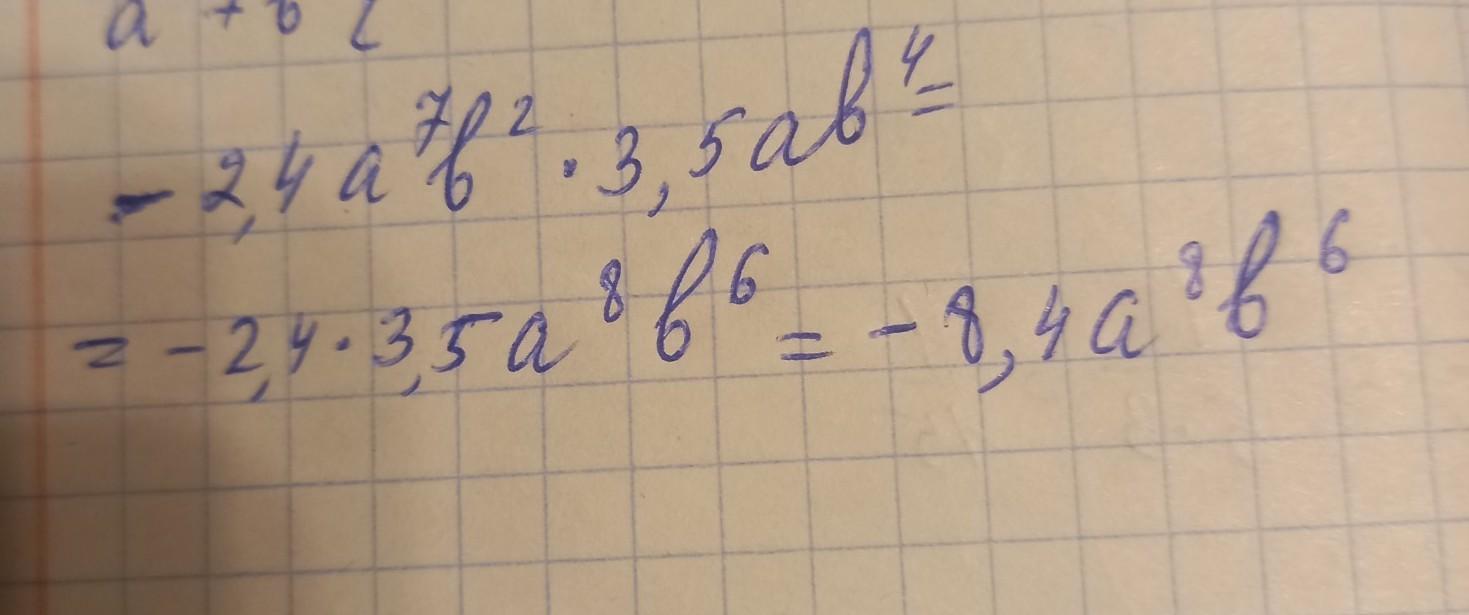 -2,4a⁷b²·3,5ab⁴=
=-2,4·3,5a⁸b⁶=-8,4a⁸b⁶